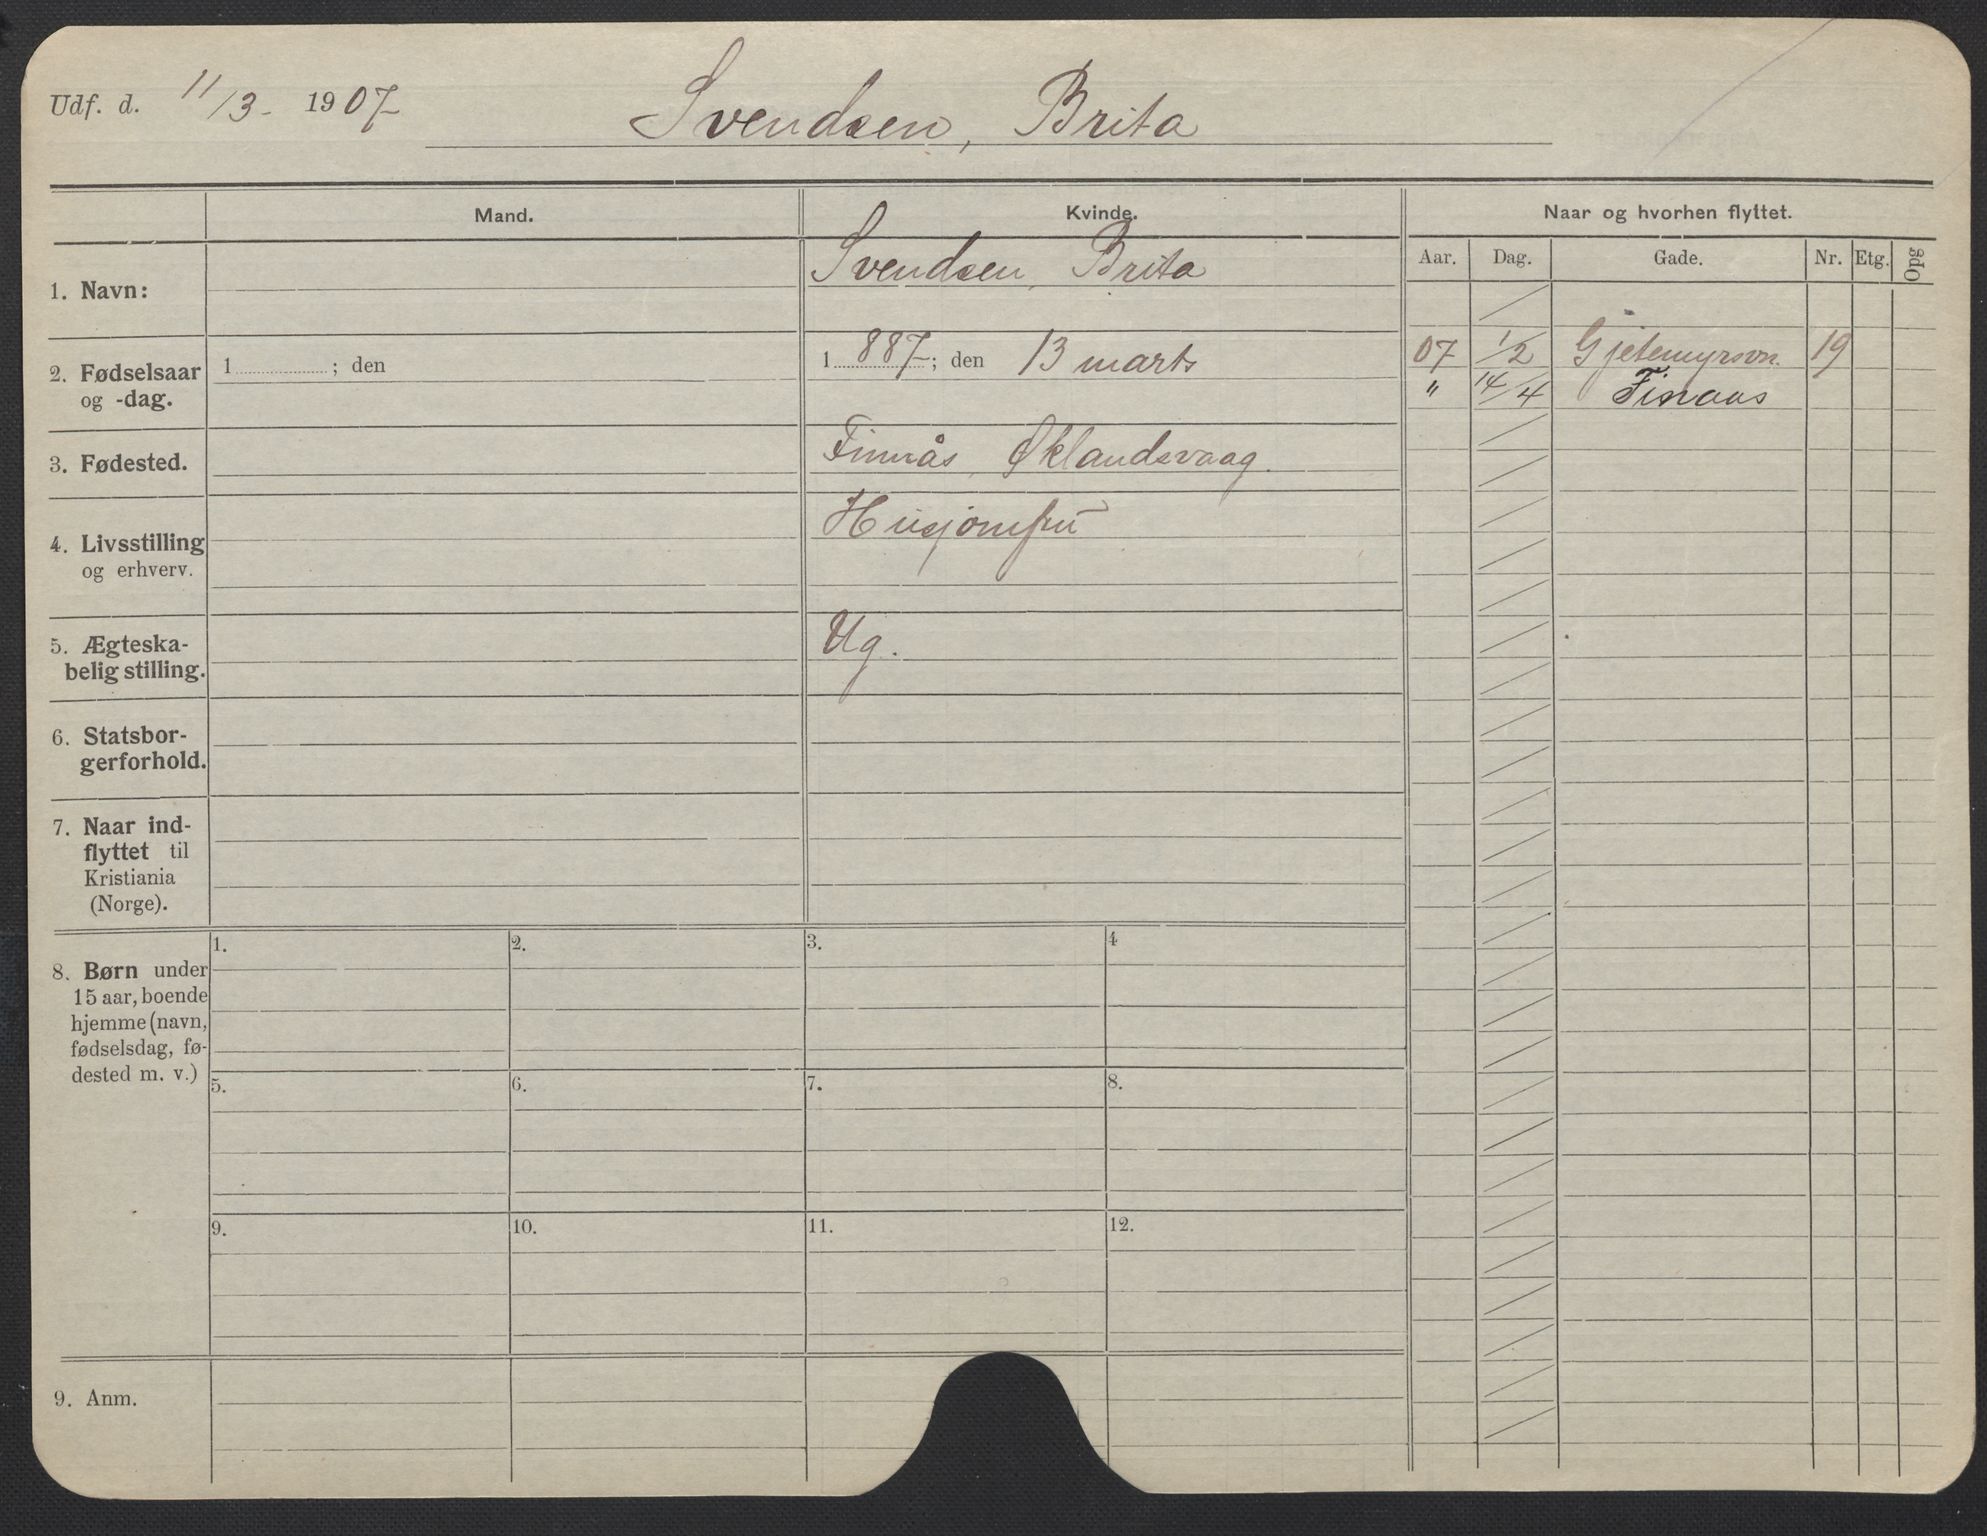 Udf. d. 11/3 - 1907
Svendsen, Brita
Mand.
Kvinde.
Naar og hvorhen flyttet.
Aar. Dag. Gade. Nr. Etg. Opg
1. Navn:
Svendsen, Brita
2. Fødselsaar
og -dag.
1 ; den
1887; den 13 marts
07 1/2 Gjetemyrsvn. 19
" 14/4 Finaas
3. Fødested.
Finnås, Øklandsvaag.
4. Livsstilling
og erhverv.
Husjomfru
5. Ægteska-
belig stilling.
Ug.
6. Statsbor-
gerforhold.
7. Naar ind-
flyttet til
Kristiania
(Norge).
8. Børn under
15 aar, boende
hjemme (navn,
fødselsdag, fø-
dested m. v.)
1. 2. 3. 4
5. 6. 7. 8.
9. 10. 11. 12.
9. Anm.